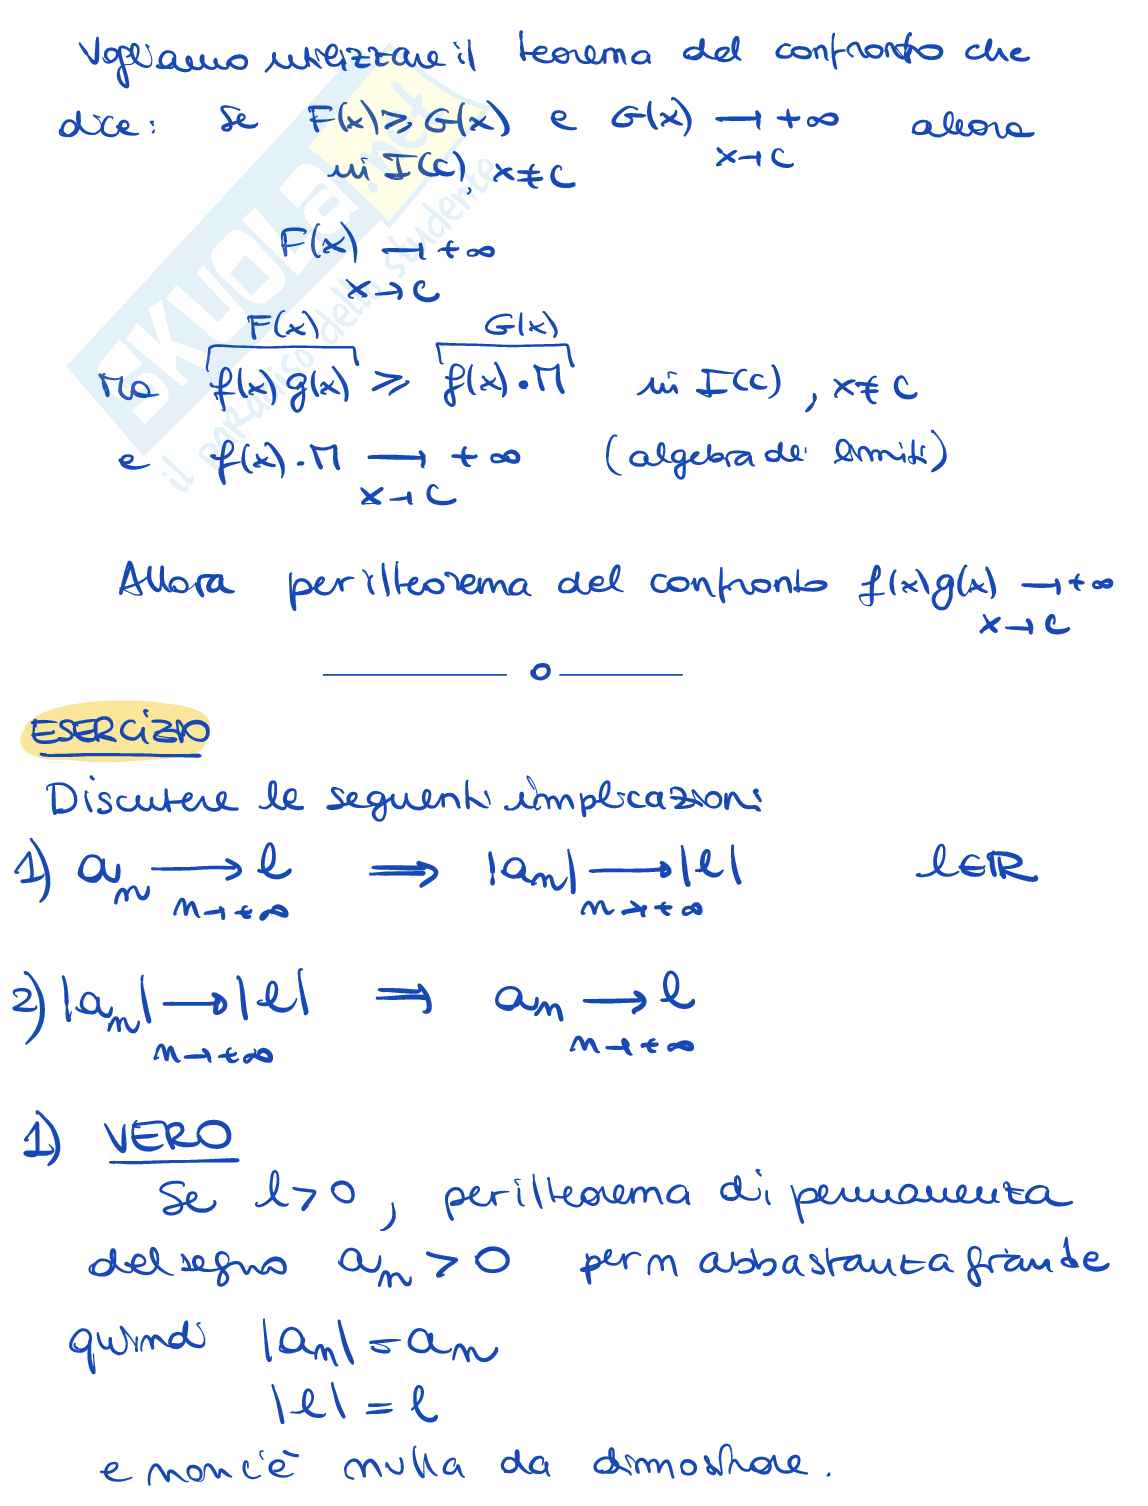 Vogliamo utilizzare il teorema del confronto che
dice: se F(x) ≥ G(x) e G(x) → +∞ allora
in I(c), x≠c x→c
F(x) → +∞
x→c
F(x) G(x)
Ma f(x) g(x) ≥ f(x)·M in I(c), x≠c
e f(x)·M → +∞ (algebra dei limiti)
x→c
Allora per il teorema del confronto f(x)g(x) → +∞
x→c
ESERCIZIO
Discutere le seguenti implicazioni
1) a_n → l ⇒ |a_n| → |l| l∈ℝ
n→+∞ n→+∞
2) |a_n| → |l| ⇒ a_n → l
n→+∞ n→+∞
1) VERO
Se l>0, per il teorema di permanenza
del segno a_n > 0 per n abbastanza grande
quindi |a_n| = a_n
|l| = l
e non c'è nulla da dimostrare.
SKUOLA.net
il paradiso dello studente